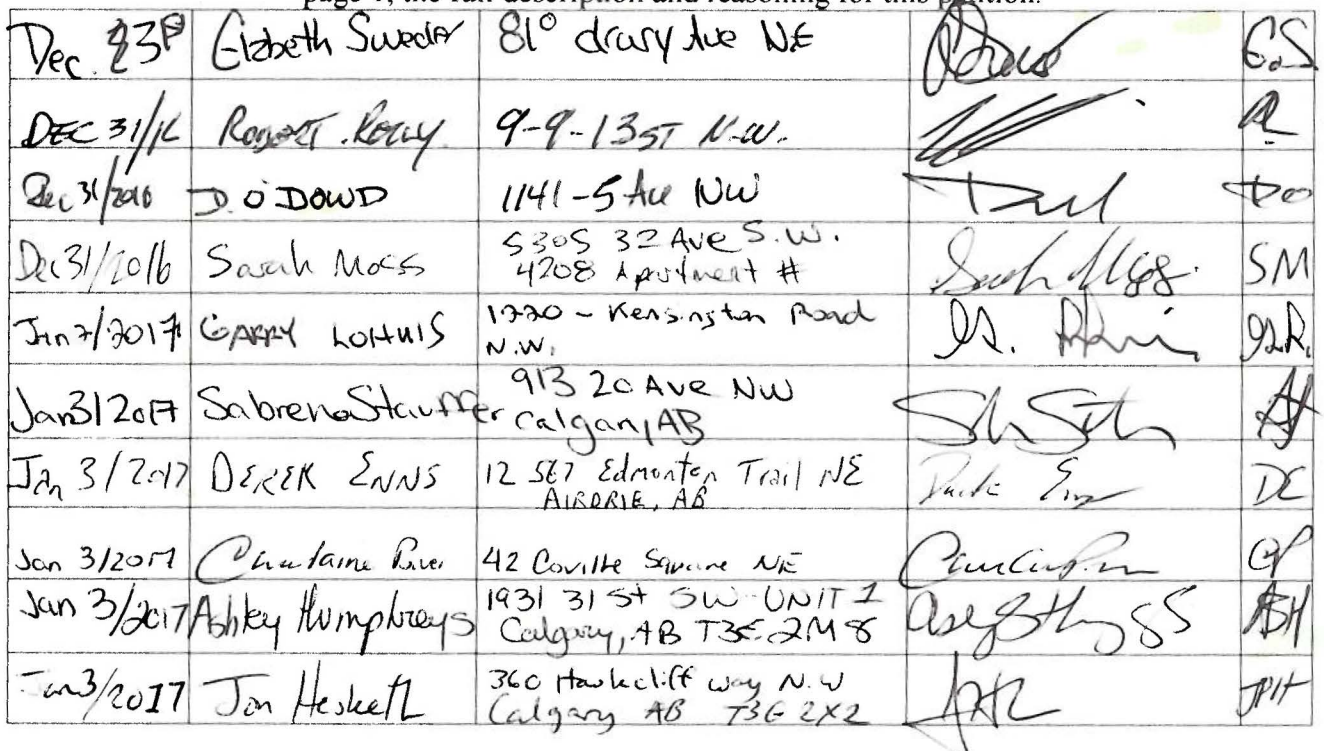 page 1, the full description and reasoning for this petition.
Dec. 23 Elzbeth Sweder 810 drury Ave NE E.S
DEC 31/16 ROBERT. 9-9-13 ST N.W.
Dec 31/2016 D. O'DOWD 1141-5 Ave NW DO
Dec 31/2016 Sarah Moss 5305 32 Ave S.W. SM
4208 Apartment #
Jan 2/2017 GARRY LOHUIS 1220 - Kensington Road G.R.
N.W.
Jan 3/2017 Sabrena Stauffer 913 20 Ave NW
Calgary, AB
Jan 3/2017 DEREK ENNS 12 567 Edmonton Trail NE DE
AIRDRIE, AB
Jan 3/2017 42 Coville Square NE CP
Jan 3/2017 Ashley Humphreys 1931 31 St SW UNIT 1 ASH
Calgary, AB T3E 2M8
Jan 3/2017 Jon Hesketh 360 Hawkcliff way N.W JPH
Calgary AB T3G 2X2